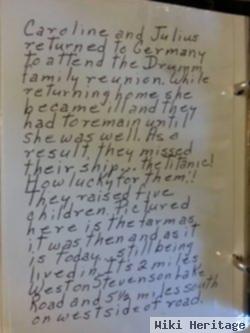 Caroline and Julius
returned to Germany
to attend the Drumm
family reunion. While
returning home she
became ill and they
had to remain until
she was well. As a
result, they missed
their ship... the Titanic!
How lucky for them!!
They raised five
children. Pictured
here is the farm as
it was then and as it
is today - still being
lived in. Its 2 miles
West on Stevenson Lake
Road and 5½ miles south
on westside of road.
Wiki Heritage